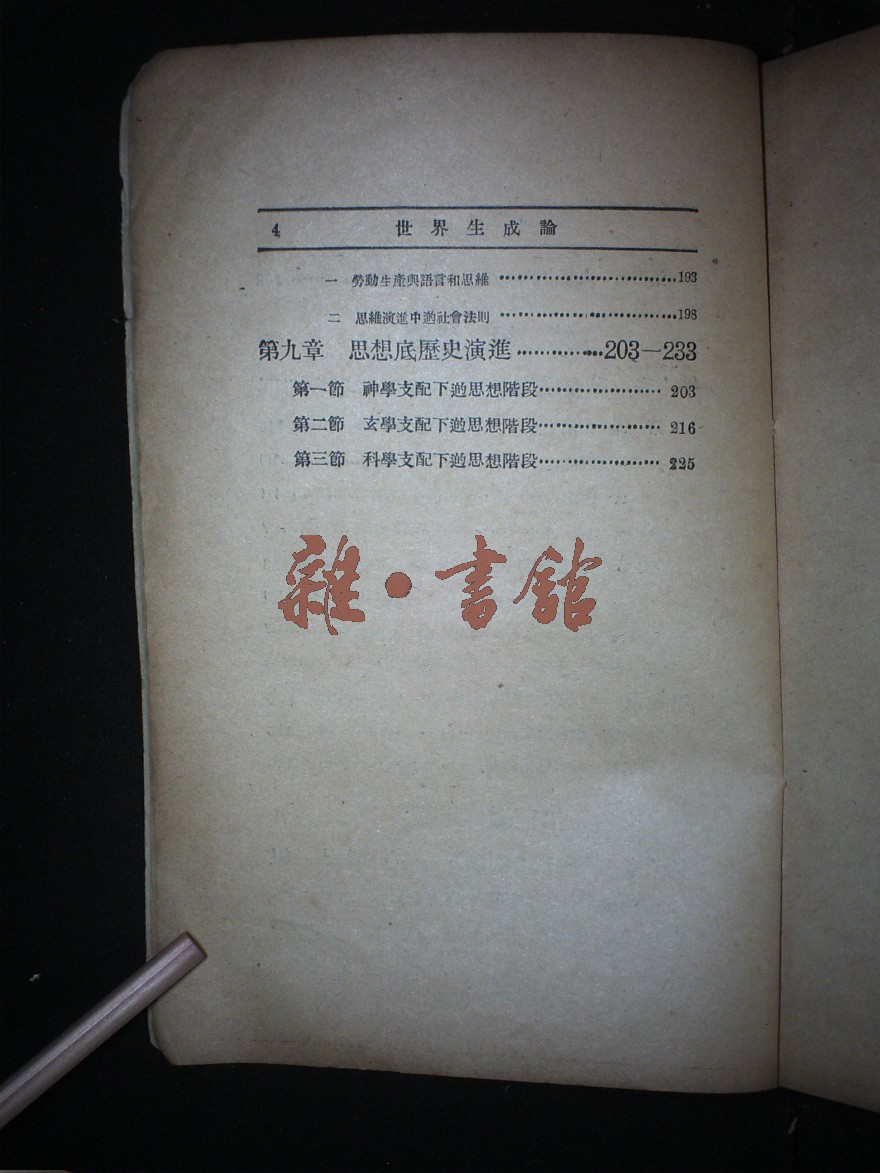 4 世界生成論
一 勞動生產與語言和思維 ································193
二 思維演進中的社會法則 ································198
第九章 思想底歷史演進 ················203—233
第一節 神學支配下的思想階段····················· 203
第二節 玄學支配下的思想階段····················· 216
第三節 科學支配下的思想階段····················· 225
雜·書館